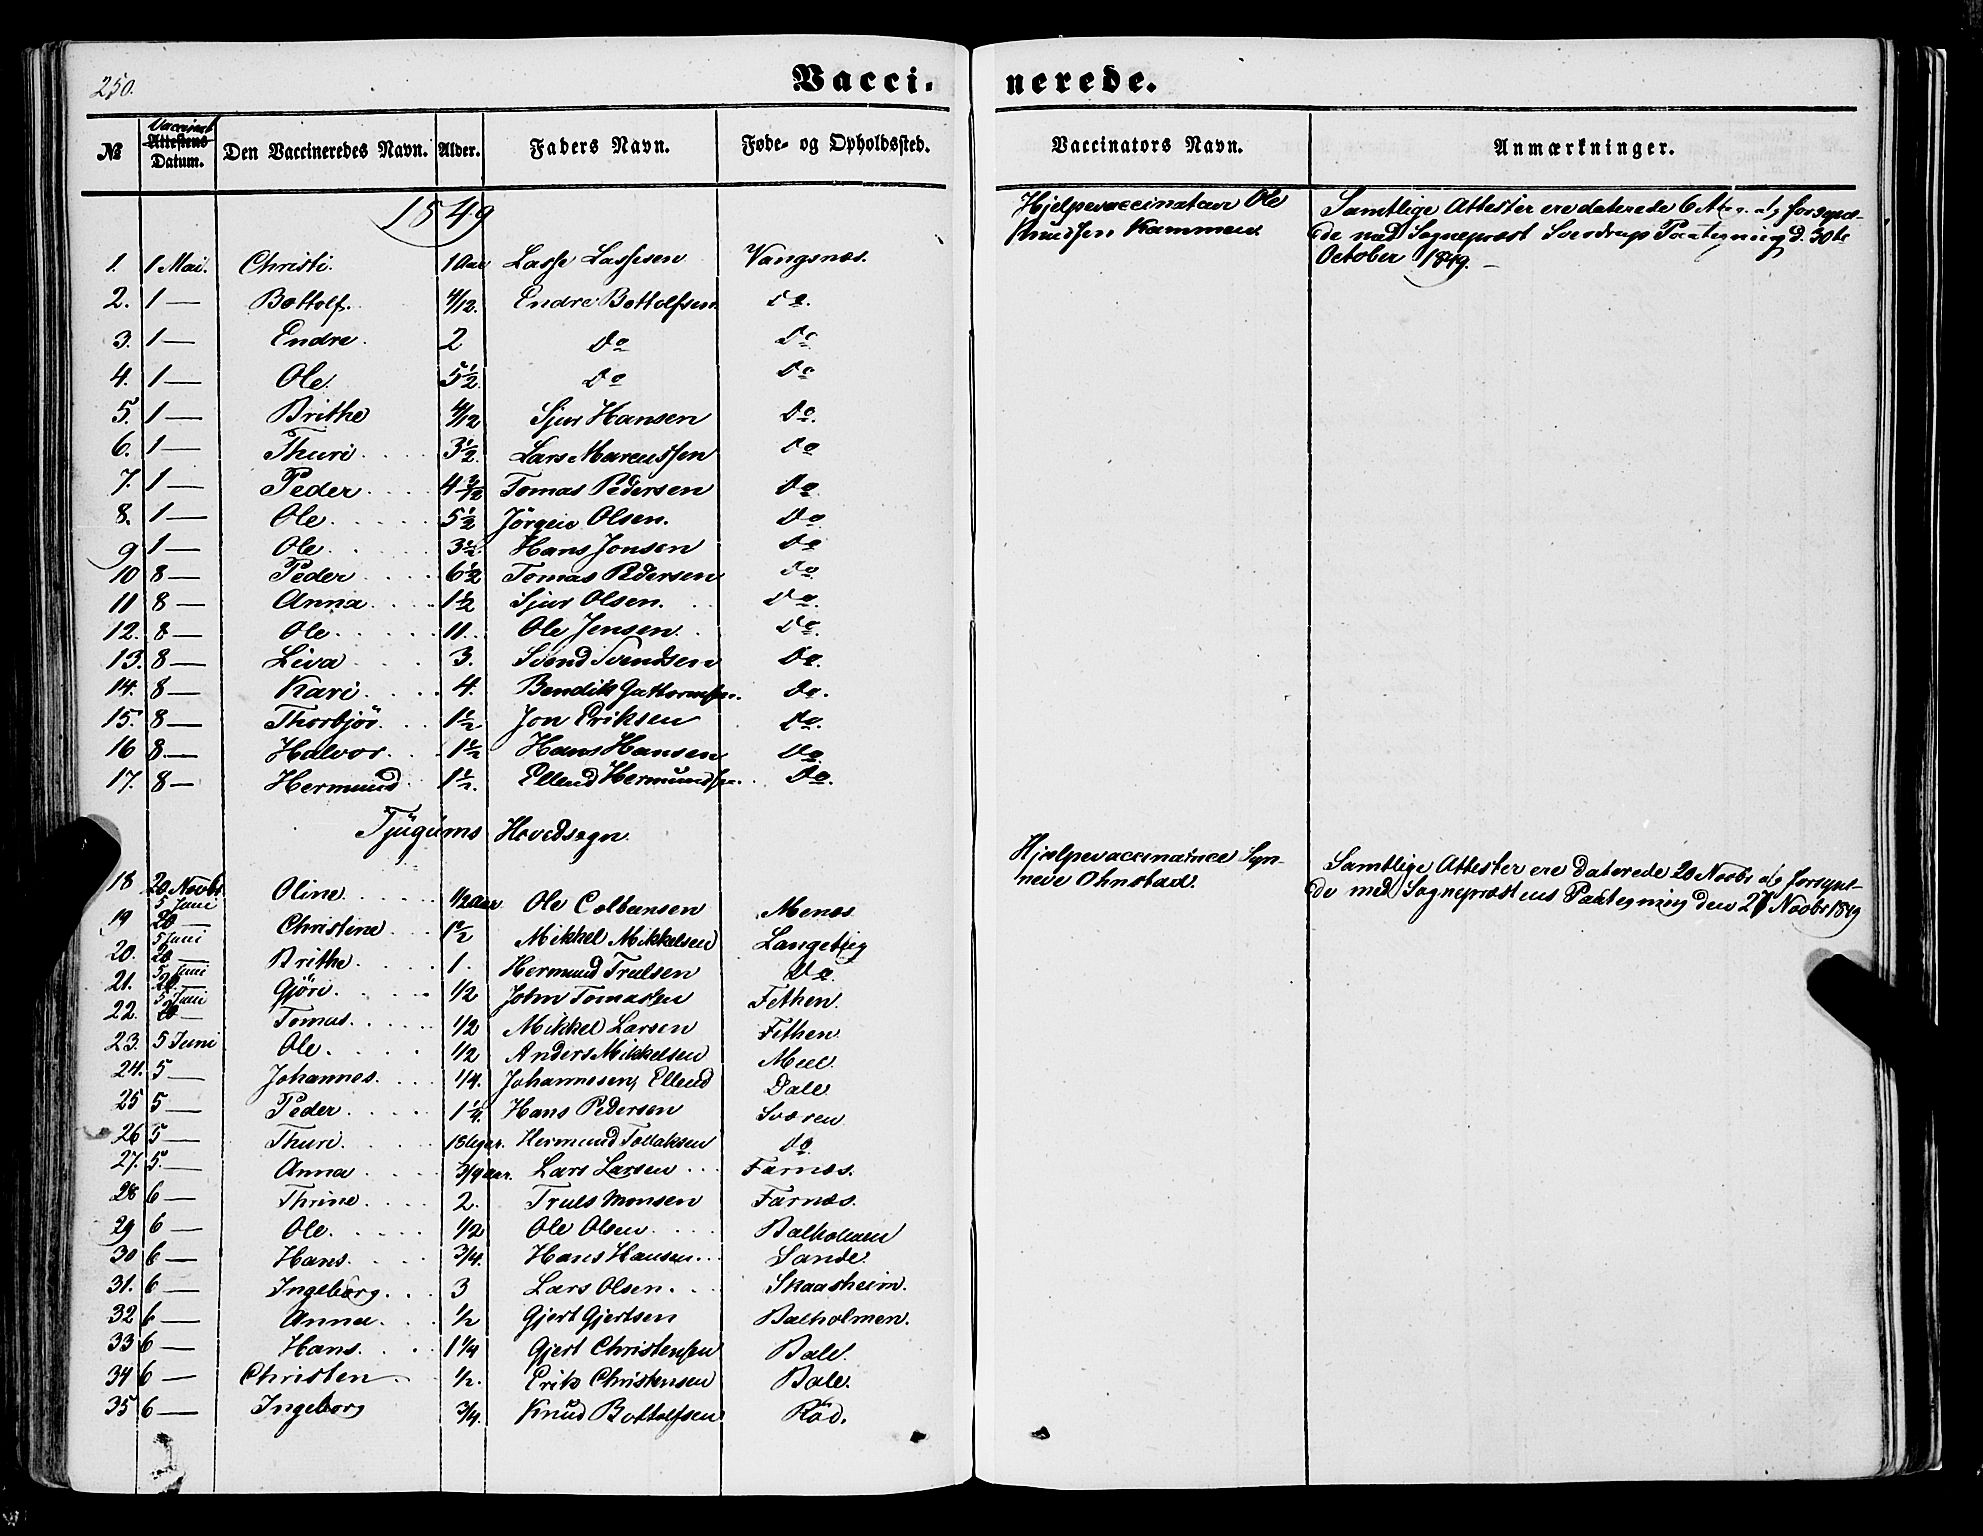 250.
Vacci- nerede.
№ Vaccinat Attestens Datum. Den Vaccineredes Navn. Alder. Faders Navn. Føde- og Opholdssted. Vaccinators Navn. Anmærkninger.
1849
Hjelpevaccinateur Ole Knudsen Kammen.
Samtlige Attester ere daterede og forsyne-
de med Sogneprest Sverdrups Paategning d. 30te
October 1849.
1. 1 Mai. Christi. 1 Aar Lasse Lassesen Vangsnæs.
2. 1 — Bottolf. 4/12. Endre Bottolfsen Do.
3. 1 — Endre. 2 Do Do
4. 1 — Ole. 5½ Do Do
5. 1 — Brithe 4/12 Sjur Hansen Do.
6. 1 — Thuri 3½ Lars Marcussen Do
7. 1 — Peder 4 3/12 Tomas Pedersen Do
8. 1 — Ole 5½ Jörgen Olsen. Do
9 1 — Ole 3½ Hans Jonsen Do
10 8 — Peder 6½ Tomas Pedersen Do
11 8 — Anna 1½ Sjur Olsen. Do.
12. 8 — Ole 11. Ole Jensen. Do.
13. 8 — Liva 3. Svend Svendsen Do.
14. 8 — Kari 4. Bendik Guttormsen. Do.
15. 8 — Thorbjör 1½ Jon Eriksen Do.
16 8 — Halvor 1½ Hans Hansen Do.
17. 8 — Hermund 1½. Ellend Hermundsen. Do.
Tjugums Hovedsogn.
Hjelpevaccinatrice Syn-
neve Ohnstad.
Samtlige Attester ere daterede 20 Novbr og forsyn-
de med Sogneprestens Paategning den 27 Novbr 1849
18 20 Novbr 5 Juni Oline ½ Aar Ole Colbensen Menæs.
19 20 — 5 Juni Christine 1½ Mikkel Mikkelsen Langeteig
20. 20 — 5 Juni Brithe 1. Hermund Trulsen Do
21. 20 — 5 Juni Gjöri 1/2 John Tomassen Fethen.
22. 20 — Tomas 1/2 Mikkel Larsen Fethen
23. 5 Juni Ole 1/2 Anders Mikkelsen Meel.
24. 5 — Johannes. 1/4. Johannesen, Ellend Dale
25 5 — Peder 1¼. Hans Pedersen Sværen
26 5 — Thuri Hermund Tollaksen Do
27. 5. — Anna 3/4 aar. Lars Larsen Farnæs.
28 6 — Thrine 2. Truls Monsen Farnæs.
29 6 — Ole 1/2 Ole Olsen Balholmen
30 6 — Hans 3/4. Hans Hansen Sande.
31. 6 — Ingeborg 3 Lars Olsen. Skaasheim.
32 6 — Anna 1/2 Gjert Gjertsen Balholmen.
33 6 — Hans. 1 1/4 Gjert Christensen Bale.
34 6 — Christen 1/2. Erik Christensen Bale.
35 6 — Ingeborg 3/4. Knud Bottolfsen Röd.